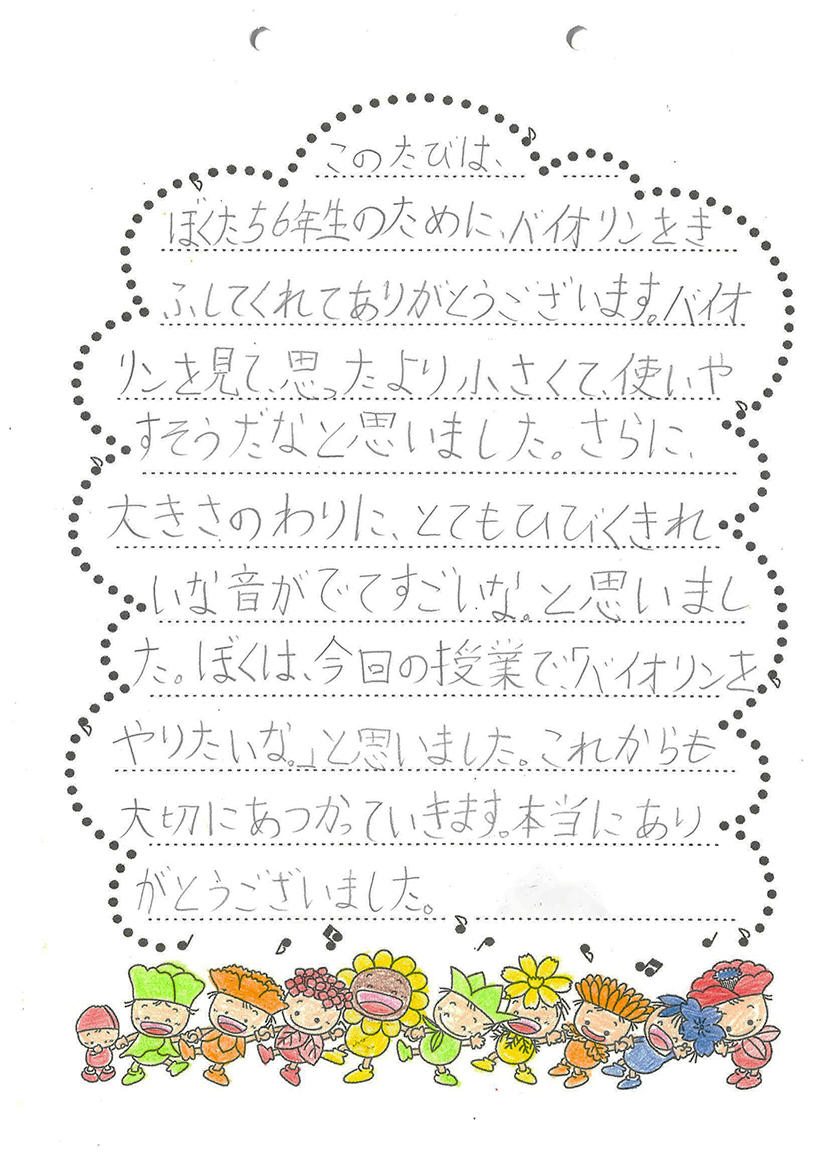 このたびは、
ぼくたち6年生のために、バイオリンをき
ふしてくれてありがとうございます。バイオ
リンを見て、思ったより小さくて、使いや
すそうだなと思いました。さらに、
大きさのわりに、とてもひびくきれ
いな音がでてすごいな。と思いまし
た。ぼくは、今回の授業で、「バイオリンを
やりたいな。」と思いました。これからも
大切にあつかっていきます。本当にあり
がとうございました。